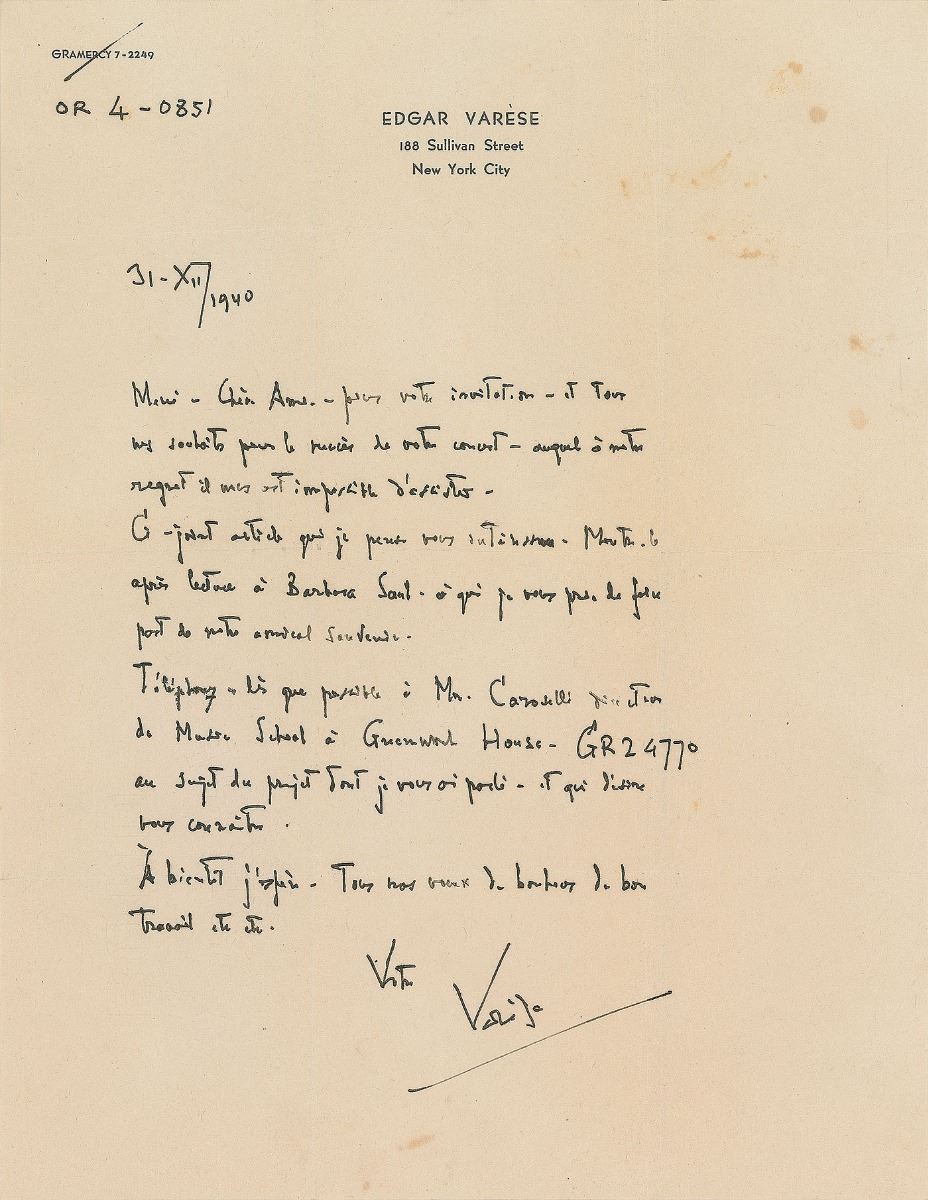 GRAMERCY 7-2249
OR 4-0851
EDGAR VARÈSE
188 Sullivan Street
New York City
31-XII/1940
Merci - Chère Amie - pour votre invitation - et tous
nos souhaits pour le succès de votre concert - auquel à notre
regret il nous est impossible d'assister -
Ci-joint article qui je pense vous intéressera. Montrez-le
après lecture à Barbara - à qui je vous prie de faire
part de notre amical souvenir.
Téléphonez dès que possible à Mr. directeur
de Music School à Greenwich House - GR 2 4770
au sujet du projet dont je vous ai parlé - et qui désire
vous connaître.
À bientôt j'espère - Tous nos voeux de bonheur de bon
travail etc etc.
Votre
Varèse